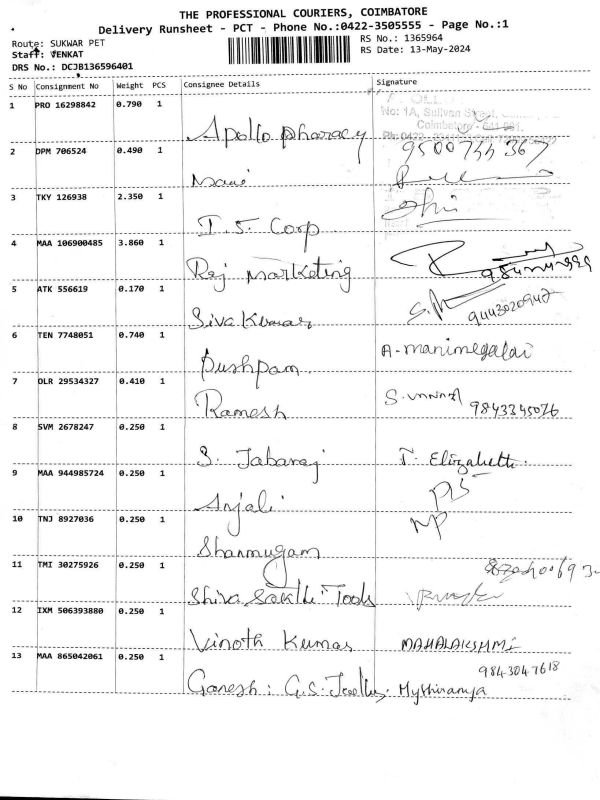 THE PROFESSIONAL COURIERS, COIMBATORE
Delivery Runsheet - PCT - Phone No.:0422-3505555 - Page No.:1
Route: SUKWAR PET
RS No.: 1365964
Staff: VENKAT
RS Date: 13-May-2024
DRS No.: DCJB136596401
S No Consignment No Weight PCS Consignee Details Signature
No: 1A, Sullivan Street,
1 PRO 16298842 0.790 1
Coimbatore - 641 001.
Apollo pharacy
2 DPM 706524 0.490 1 9500744367
Mani
3 TKY 126938 2.350 1
I.S. Corp
4 MAA 106900485 3.860 1
Raj Marketing
5 ATK 556619 0.170 1
Siva Kumar 9443020942
6 TEN 7748051 0.740 1 A-manimegalai
pushpam.
7 OLR 29534327 0.410 1
Ramesh 9843345076
8 SVM 2678247 0.250 1
S. Jabaraj T. Elizabeth
9 MAA 944985724 0.250 1
Anjali
10 TNJ 8927036 0.250 1 NP
Shanmugam
11 TMI 30275926 0.250 1
Shiva Sakthi Tools
12 IXM 506393880 0.250 1
Vinoth Kumar MAHALAKSHMI
13 MAA 865042061 0.250 1 9843047618
Ganesh: G.S. Mythiranya